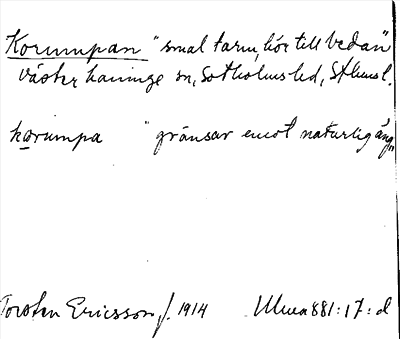 Korumpan "smal tarm, hör till Vedan"
Västerhaninge sn, Sotholms hd, Sthms l.
korumpa "gränsar emot naturlig äng"
Torsten Ericsson, f. 1914 Ulma 881:17:d